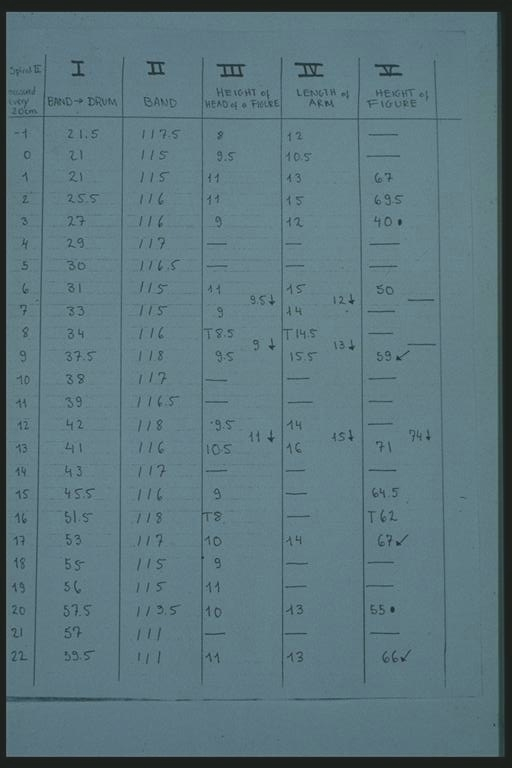 Spiral II I II III IV V
record every 20cm BAND→DRUM BAND HEIGHT of HEAD of a FIGURE LENGTH of ARM HEIGHT of FIGURE
-1 21.5 117.5 8 12 —
0 21 115 9.5 10.5 —
1 21 115 11 13 67
2 25.5 116 11 15 69.5
3 27 116 9 12 40 •
4 29 117 — — —
5 30 116.5 — — —
6 31 115 11 15 50
9.5↓ 12↓ —
7 33 115 9 14 —
8 34 116 T8.5 T14.5 —
9 ↓ 13↓ —
9 37.5 118 9.5 15.5 59✓
10 38 117 — — —
11 39 116.5 — — —
12 42 118 9.5 14 —
11 ↓ 15↓ 74↓
13 41 116 10.5 16 71
14 43 117 — — —
15 45.5 116 9 — 64.5
16 51.5 118 T8 — T62
17 53 117 10 14 67✓
18 55 115 9 — —
19 56 115 11 — —
20 57.5 113.5 10 13 55 •
21 57 111 — — —
22 59.5 111 11 13 66✓